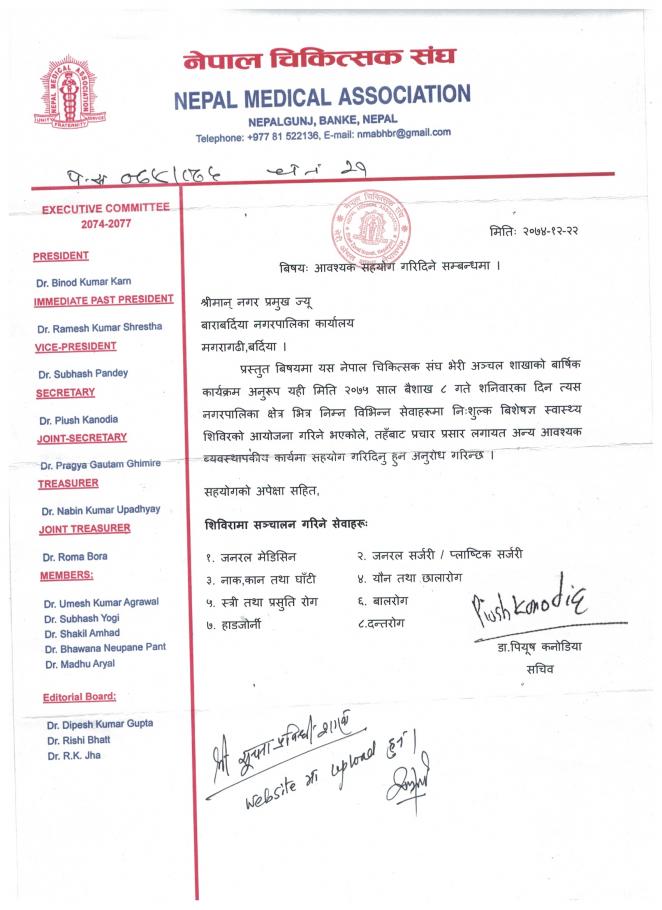 नेपाल चिकित्सक संघ
NEPAL MEDICAL ASSOCIATION
NEPALGUNJ, BANKE, NEPAL
Telephone: +977 81 522136, E-mail: nmabhbr@gmail.com
NEPAL MEDICAL ASSOCIATION
UNITY FRATERNITY SERVICE
मितिः २०७४-१२-२२
बिषयः आवश्यक सहयोग गरिदिने सम्बन्धमा ।
श्रीमान् नगर प्रमुख ज्यू
बाराबर्दिया नगरपालिका कार्यालय
मगरागढी,बर्दिया ।
प्रस्तुत बिषयमा यस नेपाल चिकित्सक संघ भेरी अञ्चल शाखाको बार्षिक
कार्यक्रम अनुरूप यही मिति २०७५ साल बैशाख ८ गते शनिवारका दिन त्यस
नगरपालिका क्षेत्र भित्र निम्न विभिन्न सेवाहरूमा निःशुल्क बिशेषज्ञ स्वास्थ्य
शिविरको आयोजना गरिने भएकोले, तहँबाट प्रचार प्रसार लगायत अन्य आवश्यक
व्यवस्थापकीय कार्यमा सहयोग गरिदिनु हुन अनुरोध गरिन्छ ।
सहयोगको अपेक्षा सहित,
शिविरामा सञ्चालन गरिने सेवाहरूः
१. जनरल मेडिसिन २. जनरल सर्जरी / प्लाष्टिक सर्जरी
३. नाक,कान तथा घाँटी ४. यौन तथा छालारोग
५. स्त्री तथा प्रसुति रोग ६. बालरोग
७. हाडजोर्नी ८.दन्तरोग
Piush Kanodia
डा.पियूष कनोडिया
सचिव
website मा upload हुन ।
EXECUTIVE COMMITTEE
2074-2077
PRESIDENT
Dr. Binod Kumar Karn
IMMEDIATE PAST PRESIDENT
Dr. Ramesh Kumar Shrestha
VICE-PRESIDENT
Dr. Subhash Pandey
SECRETARY
Dr. Piush Kanodia
JOINT-SECRETARY
Dr. Pragya Gautam Ghimire
TREASURER
Dr. Nabin Kumar Upadhyay
JOINT TREASURER
Dr. Roma Bora
MEMBERS:
Dr. Umesh Kumar Agrawal
Dr. Subhash Yogi
Dr. Shakil Amhad
Dr. Bhawana Neupane Pant
Dr. Madhu Aryal
Editorial Board:
Dr. Dipesh Kumar Gupta
Dr. Rishi Bhatt
Dr. R.K. Jha